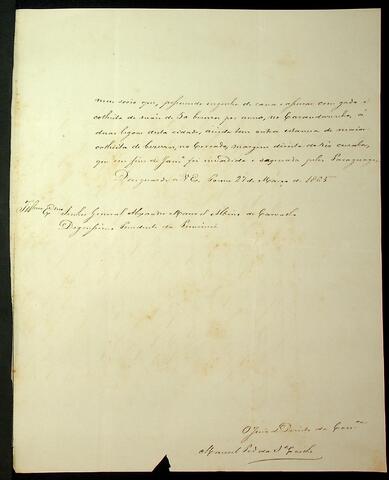 meu socio que, possuindo engenho de cana e açucar com gado e
colheita de mais de 80 bezerros por anno, no Carandasinho, à
duas legoas desta cidade, ainda tem outra estancia de maior
colheita de bezerros, no Cercado, margem direita do Rio
que em fins de Janro foi invadida e saqueada pelos Paraguayos
Deus guarde a V Ex. 27 de Março de 1865
Illmo Exmo Senhor General Alexandre Manoel Albino de Carvalho
Dignissimo Presidente da Provincia
O Juiz de Direito da Comca
Manoel da Sa